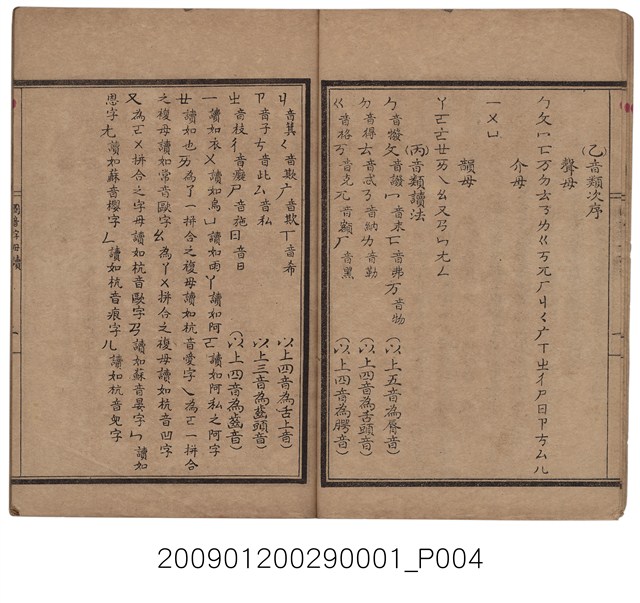 (乙)音類次序
聲母
ㄅㄆㄇㄈㄪㄉㄊㄋㄌㄍㄎㄫㄏㄐㄑㄬㄒㄓㄔㄕㄖㄗㄘㄙㄦ
介母
ㄧㄨㄩ
韻母
ㄚㄛㄜㄝㄞㄟㄠㄡㄢㄣㄤㄥ
(丙)音類讀法
ㄅ音撥ㄆ音潑ㄇ音末ㄈ音弗万音物 (以上五音為脣音)
ㄉ音得ㄊ音忒ㄋ音納ㄌ音勒 (以上四音為舌頭音)
ㄍ音格ㄎ音克兀音額ㄏ音黑 (以上四音為腭音)
ㄐ音箕ㄑ音欺广音欺ㄒ音希 (以上四音為舌上音)
ㄗ音子ㄘ音此ㄙ音私 (以上三音為齒頭音)
ㄓ音枝ㄔ音癡ㄕ音施ㄖ音日 (以上四音為齒音)
ㄧ讀如衣ㄨ讀如烏ㄩ讀如雨ㄚ讀如阿ㄛ讀如阿私之阿字
ㄝ讀如也ㄞ為了一拼合之複母讀如杭音愛字ㄟ為ㄛ一拼合
之複母讀如常音歐字ㄠ為ㄚㄨ拼合之複母讀如杭音凹字
ㄡ為ㄛㄨ拼合之字母讀如杭音歐字ㄢ讀如蘇音晏字ㄣ讀如
恩字ㄤ讀如蘇音櫻字ㄥ讀如杭音痕字ㄦ讀如杭音兒字
國音字母讀
200901200290001_P004